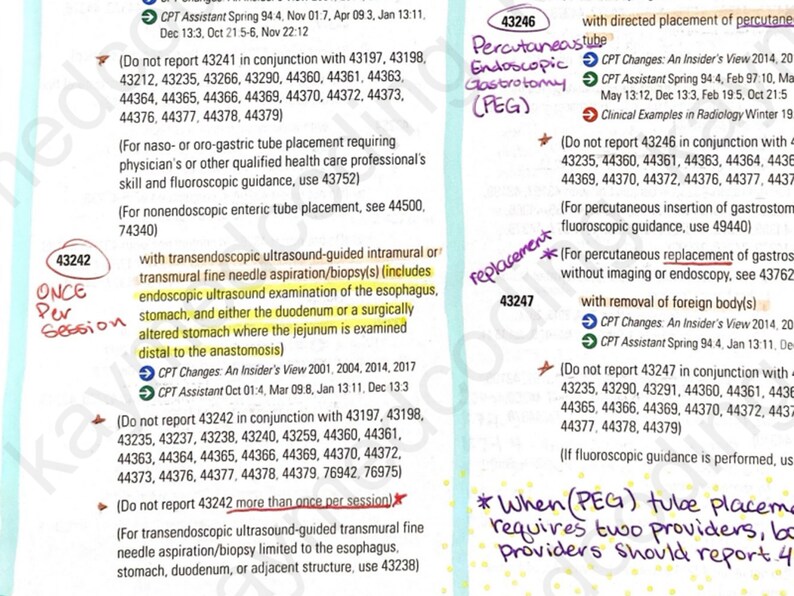 CPT Changes: An Insider's View
CPT Assistant Spring 94:4, Nov 01:7, Apr 09:3, Jan 13:11,
Dec 13:3, Oct 21:5-6, Nov 22:12
(Do not report 43241 in conjunction with 43197, 43198,
43212, 43235, 43266, 43290, 44360, 44361, 44363,
44364, 44365, 44366, 44369, 44370, 44372, 44373,
44376, 44377, 44378, 44379)
(For naso- or oro-gastric tube placement requiring
physician's or other qualified health care professional's
skill and fluoroscopic guidance, use 43752)
(For nonendoscopic enteric tube placement, see 44500,
74340)
43242 with transendoscopic ultrasound-guided intramural or
transmural fine needle aspiration/biopsy(s) (includes
endoscopic ultrasound examination of the esophagus,
stomach, and either the duodenum or a surgically
altered stomach where the jejunum is examined
distal to the anastomosis)
ONCE
Per
Session
CPT Changes: An Insider's View 2001, 2004, 2014, 2017
CPT Assistant Oct 01:4, Mar 09:8, Jan 13:11, Dec 13:3
(Do not report 43242 in conjunction with 43197, 43198,
43235, 43237, 43238, 43240, 43259, 44360, 44361,
44363, 44364, 44365, 44366, 44369, 44370, 44372,
44373, 44376, 44377, 44378, 44379, 76942, 76975)
(Do not report 43242 more than once per session)
(For transendoscopic ultrasound-guided transmural fine
needle aspiration/biopsy limited to the esophagus,
stomach, duodenum, or adjacent structure, use 43238)
43246 with directed placement of percutane
tube
Percutaneous
Endoscopic
Gastrotomy
(PEG)
CPT Changes: An Insider's View 2014, 20
CPT Assistant Spring 94:4, Feb 97:10, Ma
May 13:12, Dec 13:3, Feb 19:5, Oct 21:5
Clinical Examples in Radiology Winter 19
(Do not report 43246 in conjunction with 4
43235, 44360, 44361, 44363, 44364, 4436
44369, 44370, 44372, 44376, 44377, 4437
(For percutaneous insertion of gastrostom
fluoroscopic guidance, use 49440)
replacement
* (For percutaneous replacement of gastros
without imaging or endoscopy, see 43762
43247 with removal of foreign body(s)
CPT Changes: An Insider's View 2014, 20
CPT Assistant Spring 94:4, Jan 13:11, De
(Do not report 43247 in conjunction with 4
43235, 43290, 43291, 44360, 44361, 4436
44365, 44366, 44369, 44370, 44372, 4437
44377, 44378, 44379)
(If fluoroscopic guidance is performed, us
* When (PEG) tube placeme
requires two providers, bo
providers should report 4
kaymedcoding